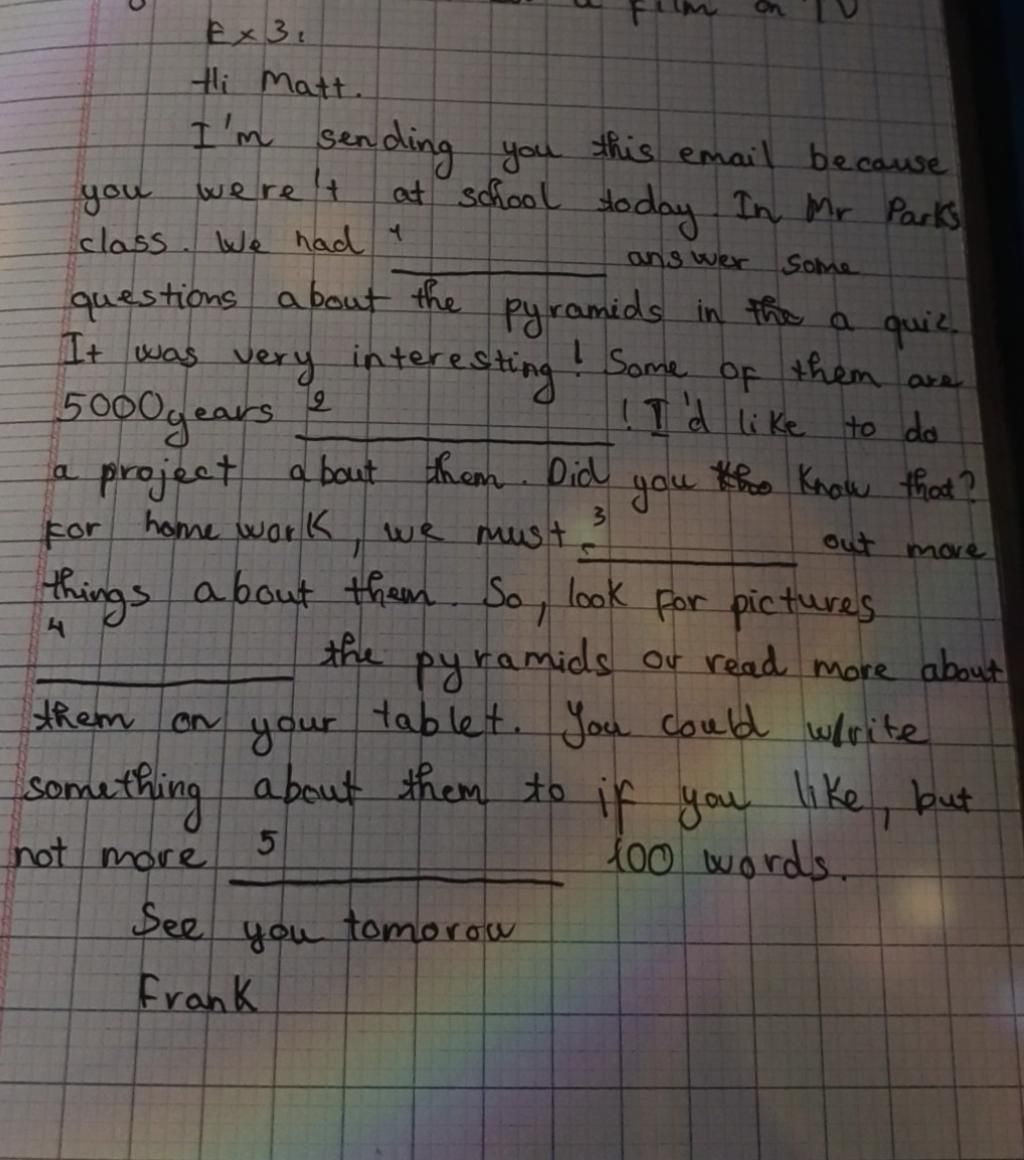 a film on TV
Ex3:
Hi Matt.
I'm sending you this email because
you were't at school today. In Mr Parks
class. We had 1 ________ answer some
questions about the pyramids in the a quiz.
It was very interesting! Some of them are
5000years 2 ________ ! I'd like to do
a project about them. Did you know that?
For home work, we must 3 ________ out more
things about them. So, look for pictures
4
________ the pyramids or read more about
them on your tablet. You could write
something about them to if you like, but
not more 5 ________ 100 words.
See you tomorow
Frank